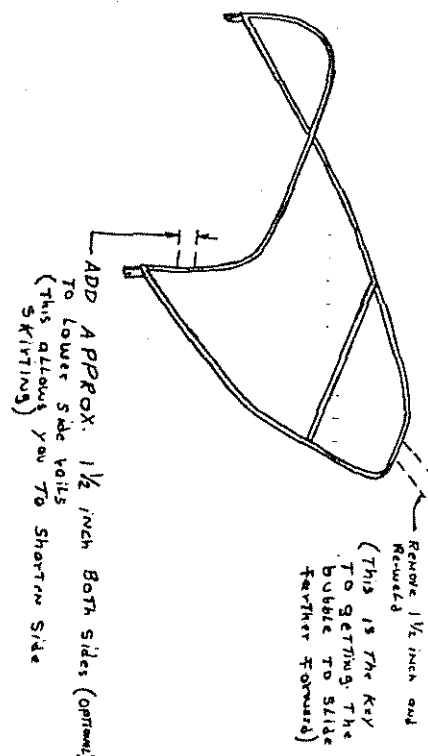 REMOVE 1 1/2 inch and
Re-weld
(This is the Key
To geTTing The
bubble To Slide
farther forward)
ADD APPROX. 1 1/2 inch BoTh Sides (opTional)
To Lower Side rails
(This allows you To ShorTen Side
SkirTing)